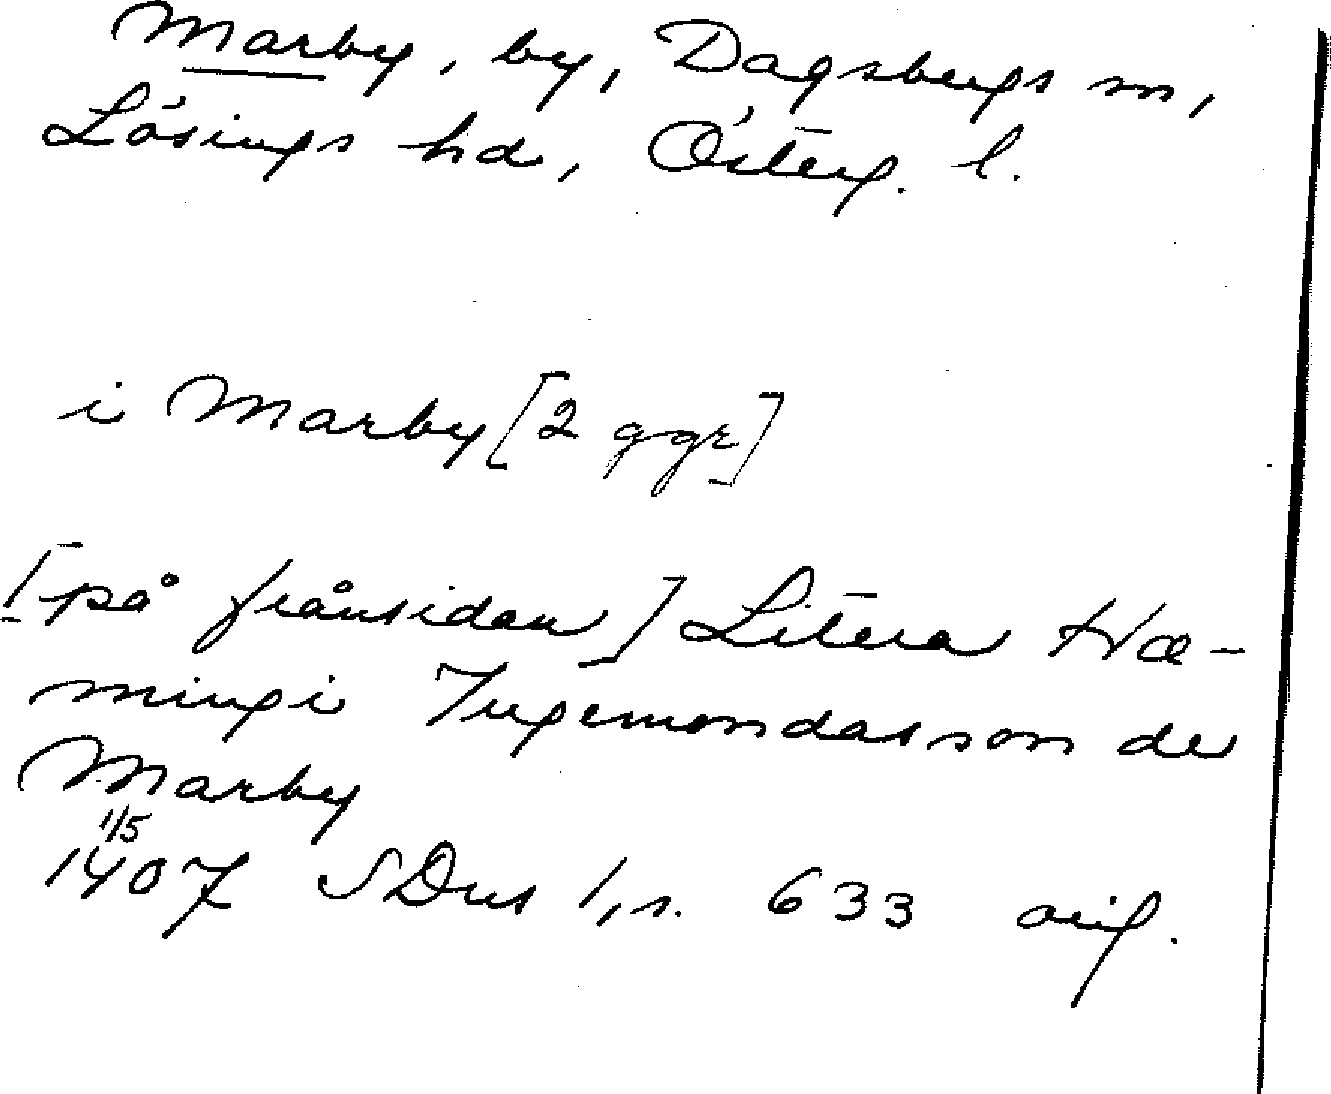 Marby, by, Dagsbergs sn,
Lösings hd, Österg. l.
i Marby [2 ggr]
[på frånsidan] Litera Hæ-
mingi Ingemondasson de
Marby
1/5
1407 SDns 1, s. 633 orig.